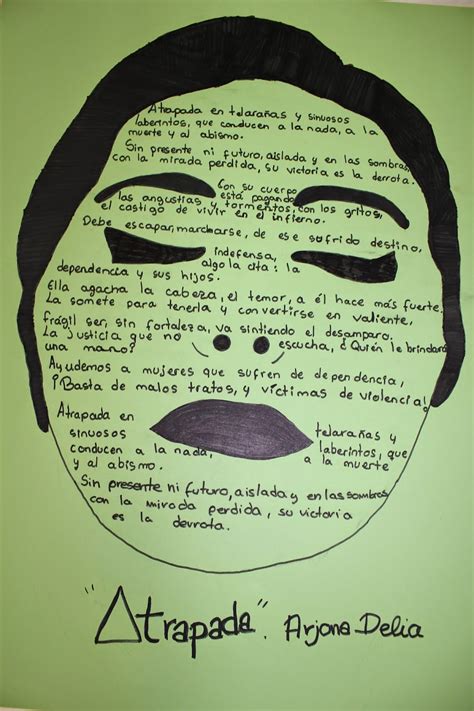 Atrapada en telarañas y sinuosos
laberintos, que conducen a la nada, a la
muerte y al abismo.
Sin presente ni futuro, aislada y en las sombras,
con la mirada perdida, su victoria es la derrota.
Con su cuerpo
está pagando
las angustias y tormentos, con los gritos,
el castigo de vivir en el infierno.
Debe escapar, marcharse, de ese sufrido destino,
indefensa,
algo la cita: la
dependencia y sus hijos.
Ella agacha la cabeza, el temor, a él hace más fuerte.
La somete para tenerla y convertirse en valiente,
frágil ser, sin fortaleza, va sintiendo el desamparo.
La justicia que no escucha, ¿Quién le brindará
una mano?
Ayudemos a mujeres que sufren de dependencia,
¡¡Basta de malos tratos, y víctimas de violencia!!
Atrapada en telarañas y
sinuosos laberintos, que
conducen a la nada, a la muerte
y al abismo.
Sin presente ni futuro, aislada y en las sombras
con la mirada perdida, su victoria
es la derrota.
"Atrapada". Arjona Delia